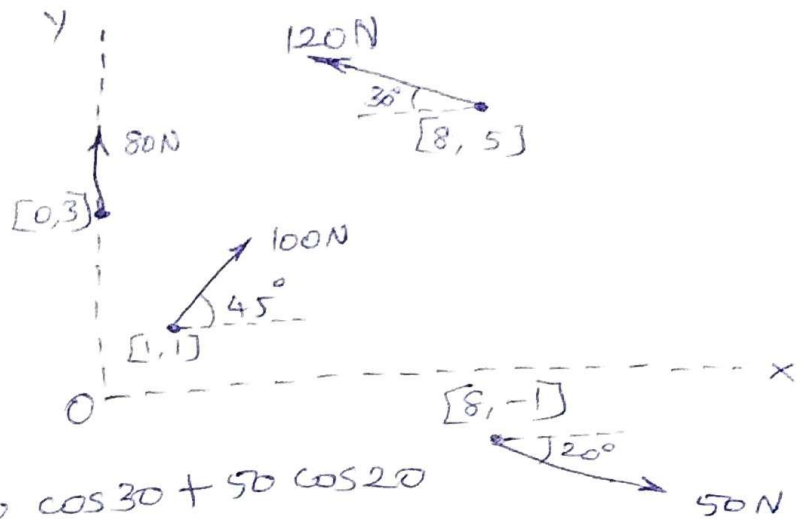 y
120N
30°
[8, 5]
80N
[0,3]
100N
45°
[1,1]
x
O
[8,-1]
20°
cos30 + 50 cos20
50N